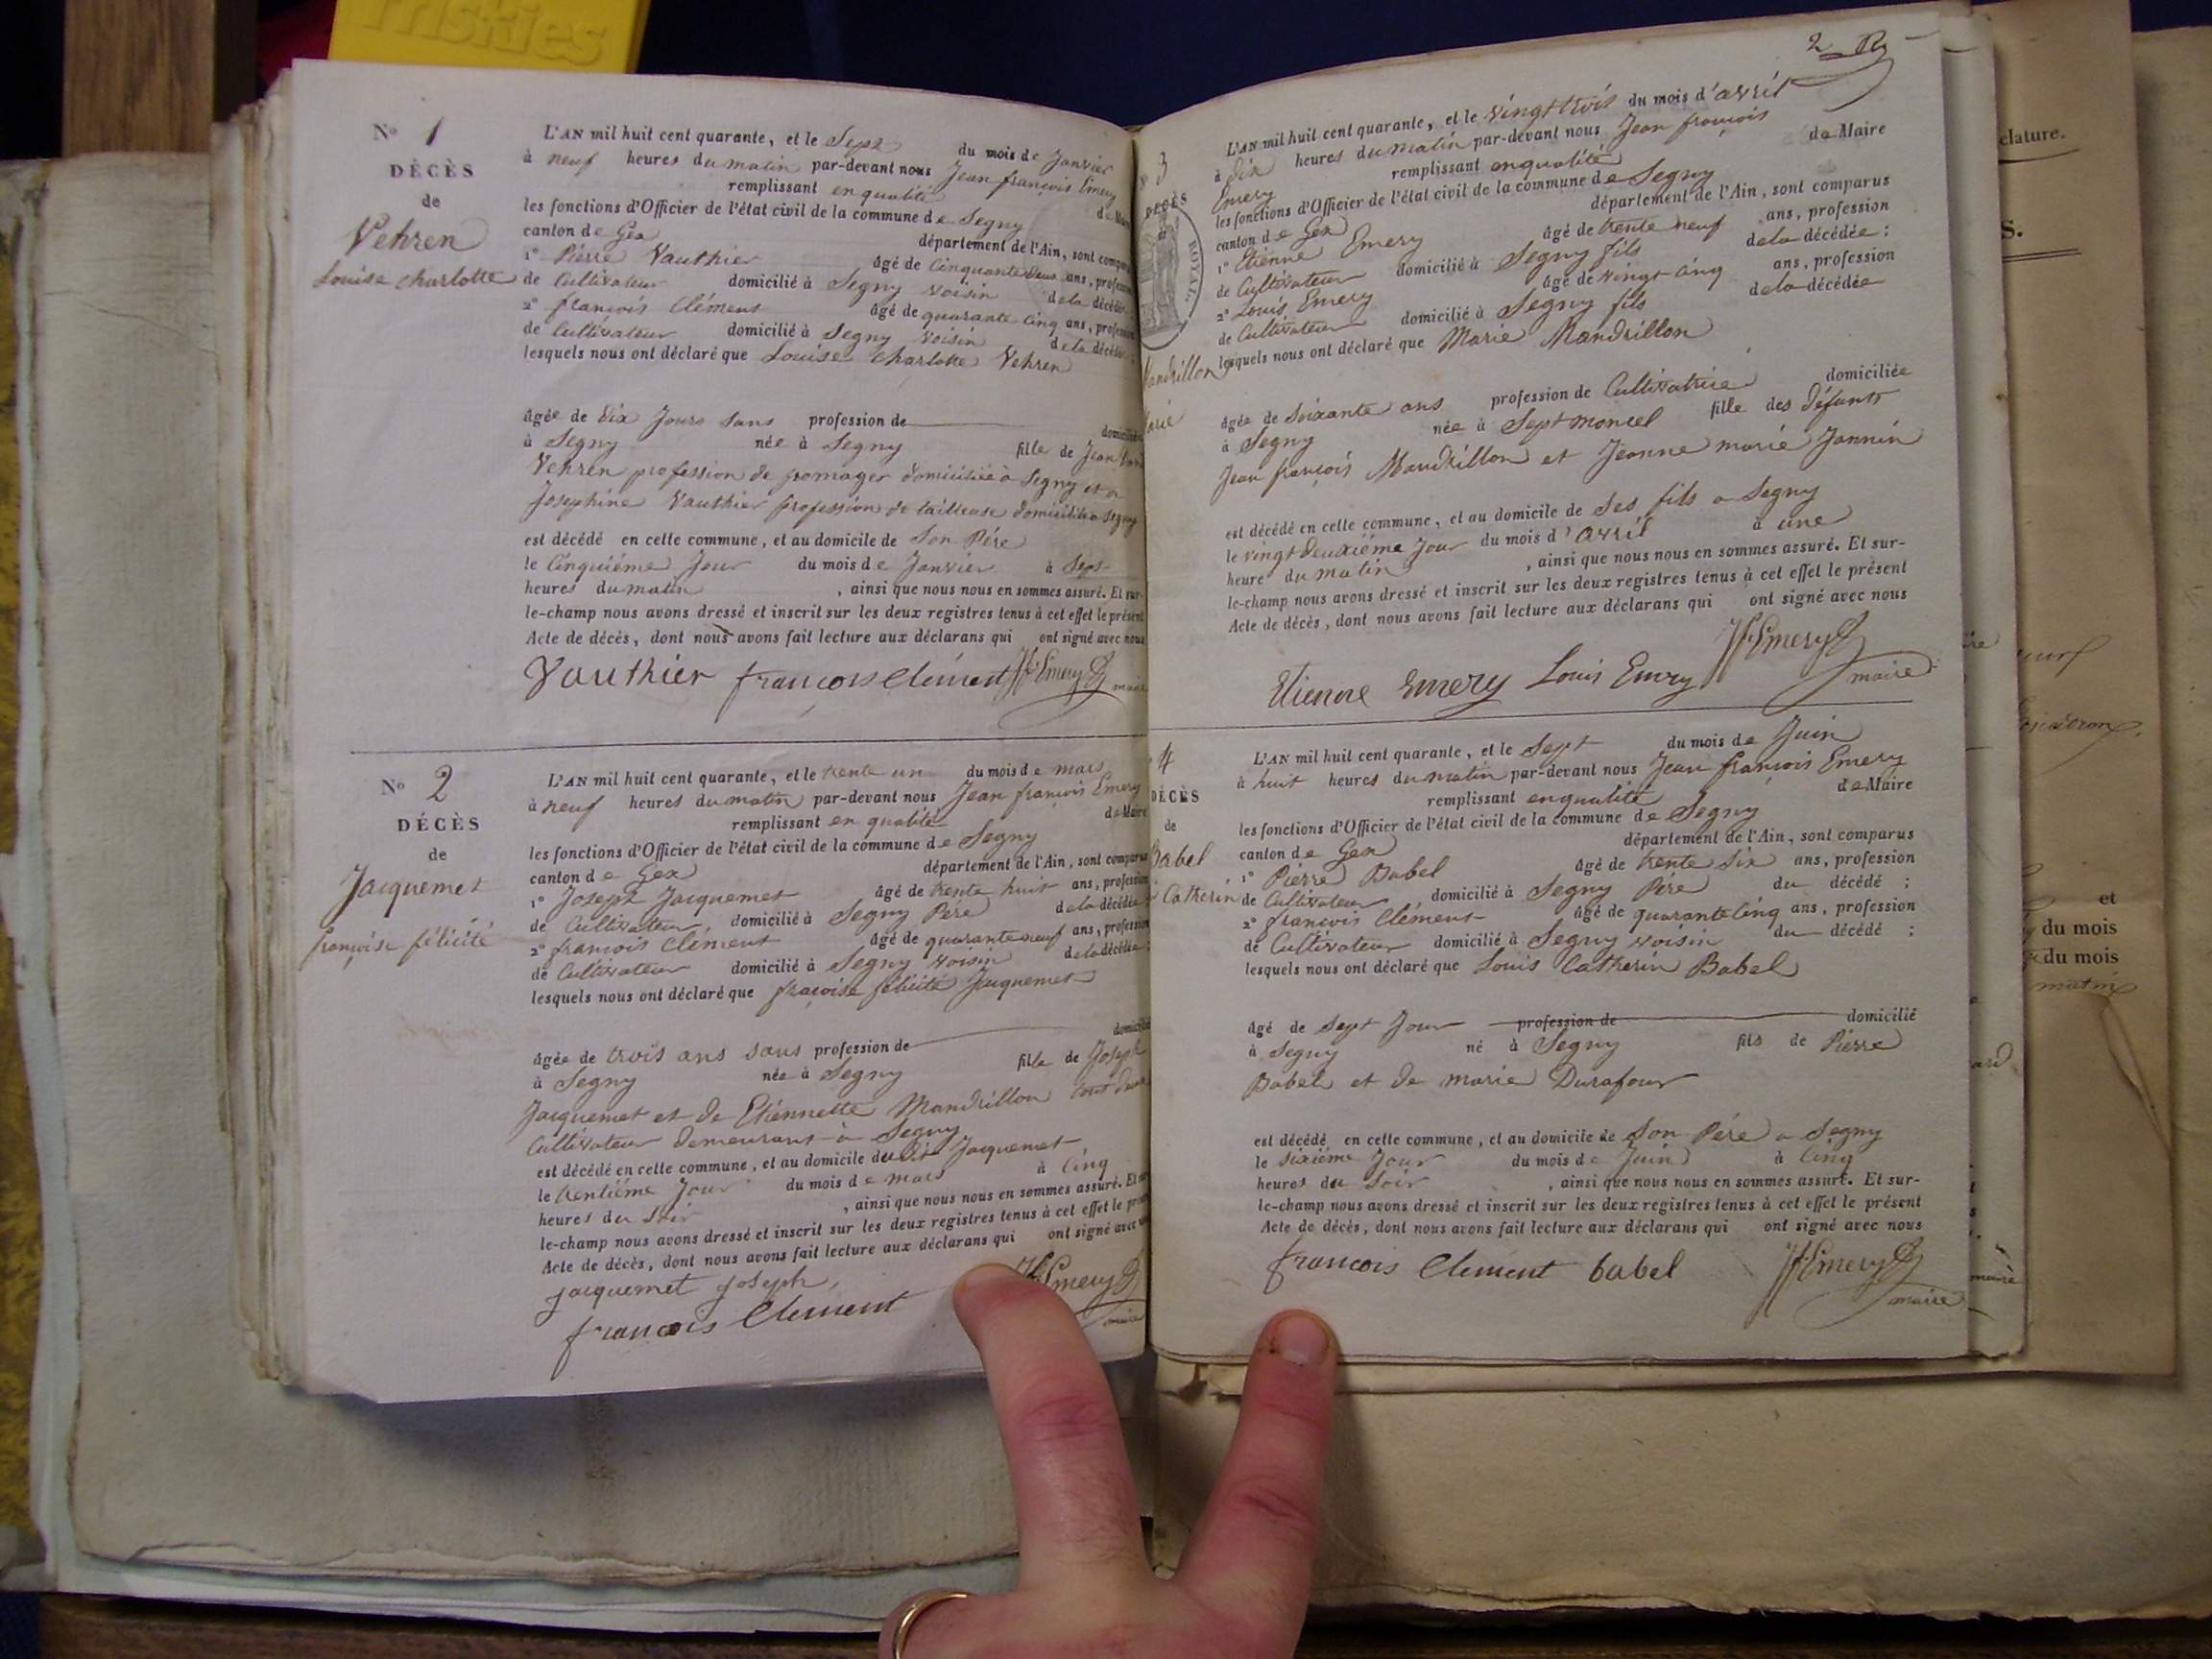 Friskies
N° 1
DÉCÈS
de
Vehren
Louise Charlotte
L'AN mil huit cent quarante, et le Sept du mois de Janvier
à neuf heures du matin par-devant nous Jean françois Emery
remplissant en qualité de Maire
les fonctions d'Officier de l'état civil de la commune de Segny
canton de Gex département de l'Ain, sont comparus
1° Pierre Vauthier âgé de Cinquante deux ans, profession
de Cultivateur domicilié à Segny voisin de la décédée
2° françois Clément âgé de quarante cinq ans, profession
de Cultivateur domicilié à Segny voisin de la décédée
lesquels nous ont déclaré que Louise Charlotte Vehren
âgée de dix Jours Sans profession de domiciliée
à Segny née à Segny fille de Jean
Vehren profession de fromager domicilié à Segny et
Josephine Vauthier profession de tailleuse domiciliée a Segny
est décédé en celle commune, et au domicile de Son Père
le Cinquième Jour du mois de Janvier à Sept
heures du matin, ainsi que nous nous en sommes assuré. Et sur-
le-champ nous avons dressé et inscrit sur les deux registres tenus à cet effet le présent
Acte de décès, dont nous avons fait lecture aux déclarans qui ont signé avec nous
Vauthier françois Clément Jf Emery
maire
N° 2
DÉCÈS
de
Jacquemet
françoise félicité
L'AN mil huit cent quarante, et le trente un du mois de mars
à neuf heures du matin par-devant nous Jean françois Emery
remplissant en qualité de Maire
les fonctions d'Officier de l'état civil de la commune de Segny
canton de Gex département de l'Ain, sont comparus
1° Joseph Jacquemet âgé de trente huit ans, profession
de Cultivateur domicilié à Segny Père de la décédée
2° françois Clément âgé de quarante neuf ans, profession
de Cultivateur domicilié à Segny voisin de la décédée
lesquels nous ont déclaré que fraçoise félicité Jacquemet
âgée de trois ans sans profession de domiciliée
à Segny née à Segny fille de Joseph
Jacquemet et de Etiennette Mandrillon tout deux
Cultivateur demeurant à Segny
est décédé en celle commune, et au domicile du dit Jacquemet
le trentième Jour du mois de mars à Cinq
heures du Soir, ainsi que nous nous en sommes assuré. Et sur-
le-champ nous avons dressé et inscrit sur les deux registres tenus à cet effet le présent
Acte de décès, dont nous avons fait lecture aux déclarans qui ont signé avec nous
jacquemet joseph Jf Emery
françois Clement maire
2
3
DÉCÈS
de
ROYAL
Mandrillon
Marie
L'AN mil huit cent quarante, et le vingt trois du mois d'avril
à dix heures du matin par-devant nous Jean françois
Emery remplissant en qualité de Maire
les fonctions d'Officier de l'état civil de la commune de Segny
canton de Gex département de l'Ain, sont comparus
1° Etienne Emery âgé de trente neuf ans, profession
de Cultivateur domicilié à Segny fils de la décédée;
2° Louis Emery âgé de vingt cinq ans, profession
de Cultivateur domicilié à Segny fils de la décédée
lesquels nous ont déclaré que Marie Mandrillon
âgée de Soixante ans profession de Cultivatrice domiciliée
à Segny née à Septmoncel fille des défunts
Jean françois Mandrillon et Jeanne marie Jannin
est décédé en celle commune, et au domicile de Ses fils a Segny
le vingt deuxième Jour du mois d'avril à une
heure du matin, ainsi que nous nous en sommes assuré. Et sur-
le-champ nous avons dressé et inscrit sur les deux registres tenus à cet effet le présent
Acte de décès, dont nous avons fait lecture aux déclarans qui ont signé avec nous
Jf Emery
Etienne Emery Louis Emery maire
4
DÉCÈS
de
Babel
Catherin
L'AN mil huit cent quarante, et le Sept du mois de Juin
à huit heures du matin par-devant nous Jean françois Emery
remplissant en qualité de Maire
les fonctions d'Officier de l'état civil de la commune de Segny
canton de Gex département de l'Ain, sont comparus
1° Pierre Babel âgé de trente Six ans, profession
de Cultivateur domicilié à Segny Père du décédé;
2° françois Clément âgé de quarante Cinq ans, profession
de Cultivateur domicilié à Segny voisin du décédé;
lesquels nous ont déclaré que Louis Catherin Babel
âgé de Sept Jour profession de domicilié
à Segny né à Segny fils de Pierre
Babel et de marie Durafour
est décédé en celle commune, et au domicile de Son Père a Segny
le Sixième Jour du mois de Juin à Cinq
heures du Soir, ainsi que nous nous en sommes assuré. Et sur-
le-champ nous avons dressé et inscrit sur les deux registres tenus à cet effet le présent
Acte de décès, dont nous avons fait lecture aux déclarans qui ont signé avec nous
françois Clement babel Jf Emery
maire
clature.
S.
et
du mois
du mois
matin
maire